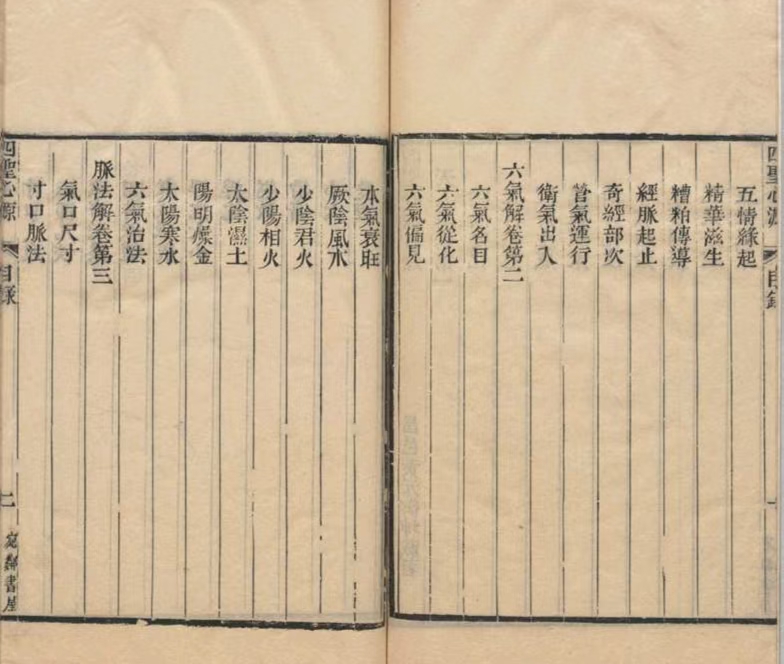 四聖心源 目錄 一
五情緣起
精華滋生
糟粕傳導
經脈起止
奇經部次
營氣運行
衛氣出入
六氣解卷第二
六氣名目
六氣從化
六氣偏見
本氣衰旺
厥陰風木
少陰君火
少陽相火
太陰濕土
陽明燥金
太陽寒水
六氣治法
脈法解卷第三
氣口尺寸
寸口脈法
四聖心源 目錄 二 宛鄰書屋